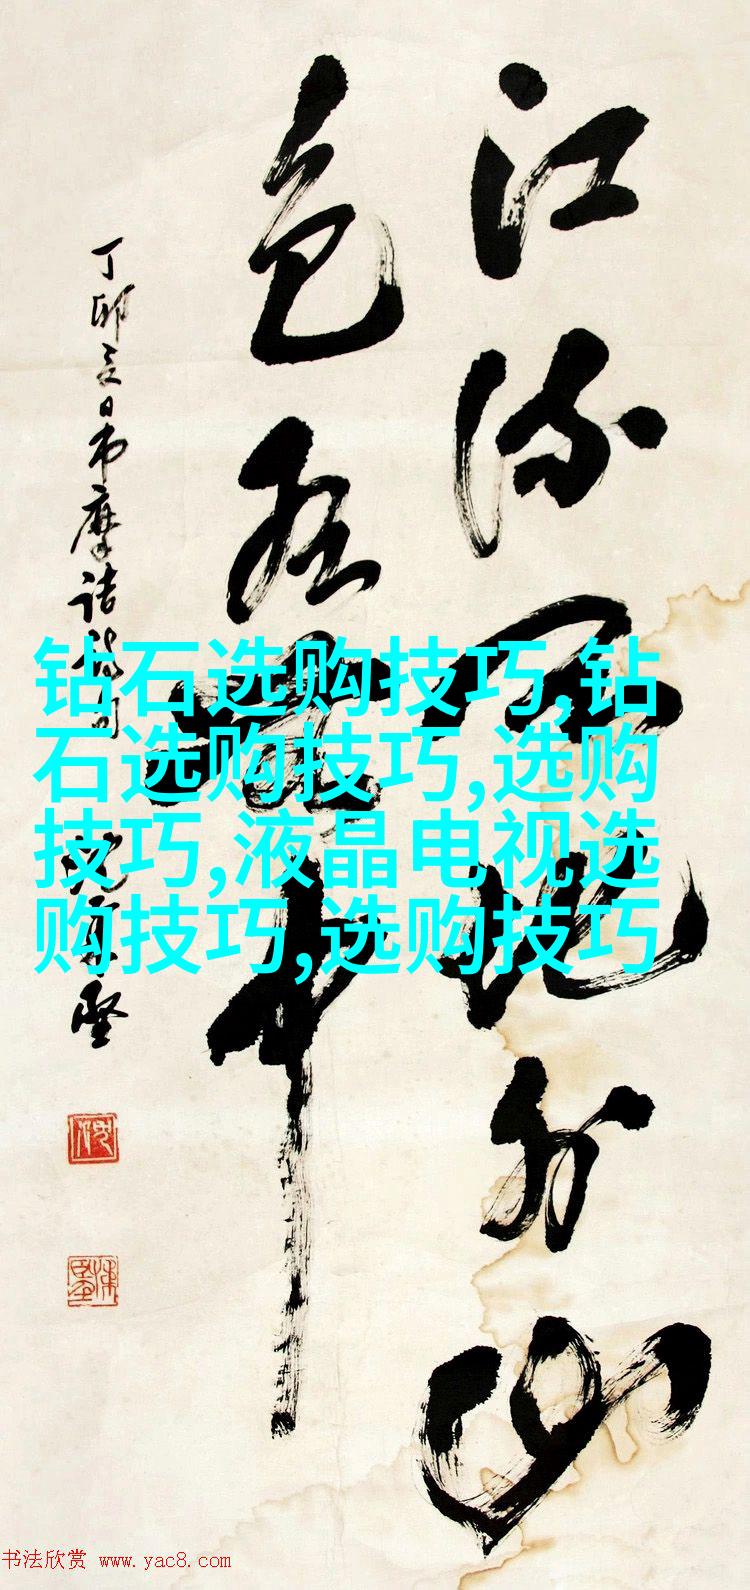 江流天地外山
色有无中
丁卯夏日书摩诘诗句
钻石选购技巧,钻
石选购技巧,选购
技巧,液晶电视选
购技巧,选购技巧
书法欣赏 www.yac8.com